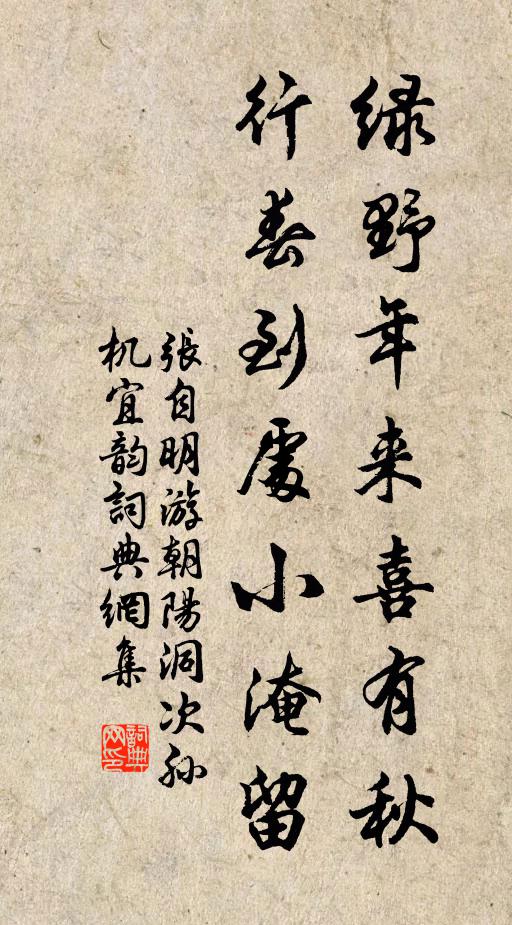 绿野年来喜有秋
行春到處小淹留
張自明游朝陽洞次孙
机宜韵詞典網集
詞典网印